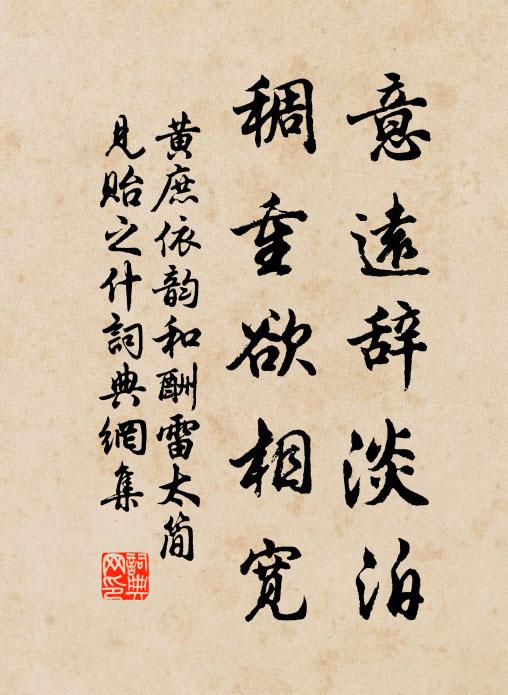 意遠辞淡泊
稠重欲相寬
黃庶依韵和酬雷太简
見貽之什詞典網集
詞典
網印